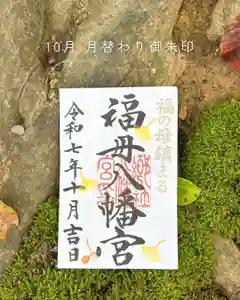 10月 月替わり御朱印
福の母鎮まる
福母八幡宮
令和七年十月吉日